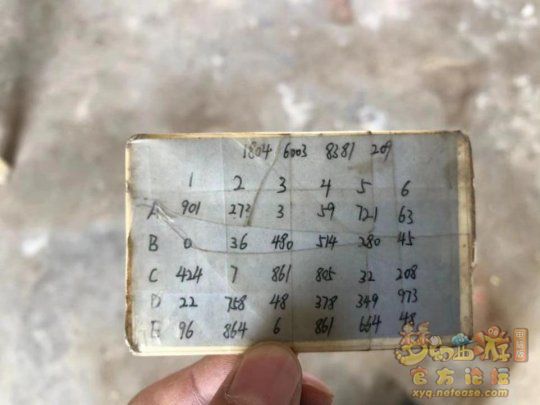 1804 6003 8381 209
1 2 3 4 5 6
A 901 273 3 59 721 63
B 0 36 480 514 280 45
C 424 7 861 805 32 208
D 22 758 48 378 349 973
E 96 864 6 861 664 48
梦幻西游 电脑版
官方论坛
xyq.netease.com